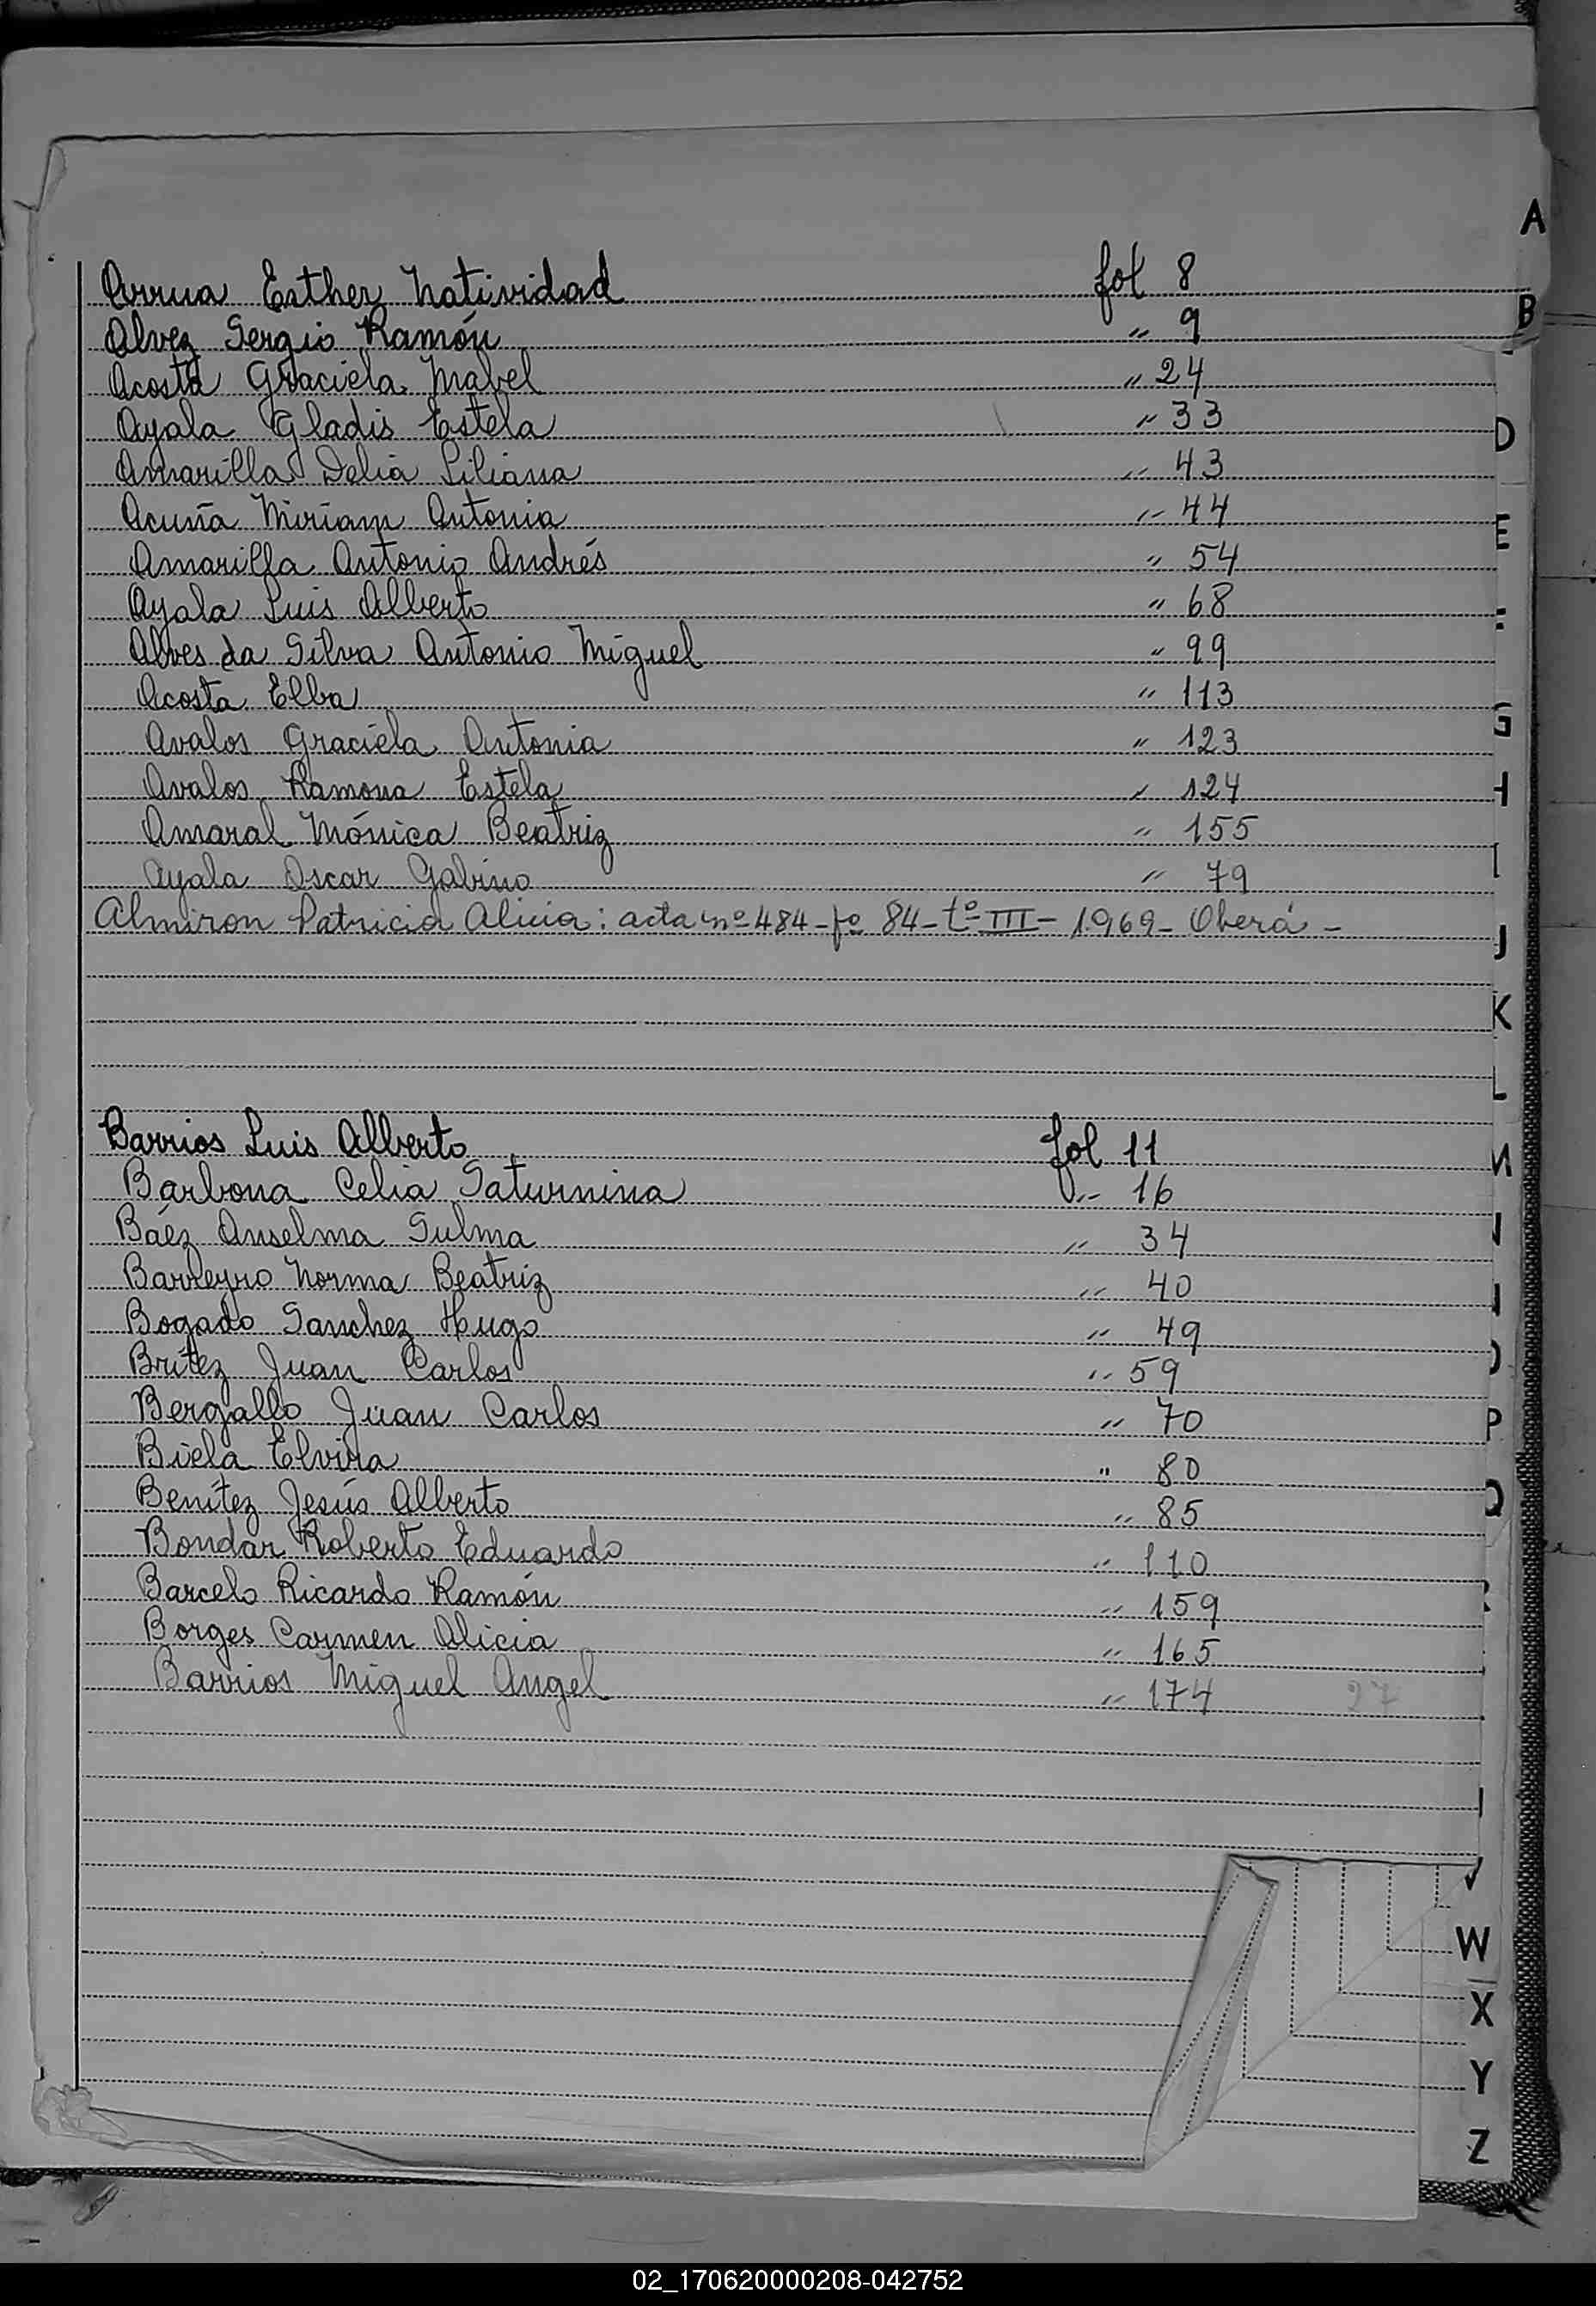 Arrua Esther Natividad fol 8
Alvez Sergio Ramón " 9
Acosta Graciela Mabel " 24
Ayala Gladis Estela " 33
Amarilla Delia Liliana " 43
Acuña Miriam Antonia " 44
Amarilla Antonio Andrés " 54
Ayala Luis Alberto " 68
Alves da Silva Antonio Miguel " 99
Acosta Elba " 113
Avalos Graciela Antonia " 123
Avalos Ramona Estela " 124
Amaral Mónica Beatriz " 155
Ayala Oscar Gabino " 79
Almiron Patricia Alicia: acta nº 484 - fº 84 - tº III - 1969 - Oberá -
Barrios Luis Alberto fol 11
Barbona Celia Saturnina " 16
Báez Anselma Sulma " 34
Barreyro Norma Beatriz " 40
Bogado Sanchez Hugo " 49
Brítez Juan Carlos " 59
Bergallo Juan Carlos " 70
Biela Elvira " 80
Benítez Jesús Alberto " 85
Bondar Roberto Eduardo " 110
Barcelo Ricardo Ramón " 159
Borges Carmen Alicia " 165
Barrios Miguel Angel " 174 27
A
B
D
E
G
H
I
J
K
L
P
Q
W
X
Y
Z
02_170620000208-042752